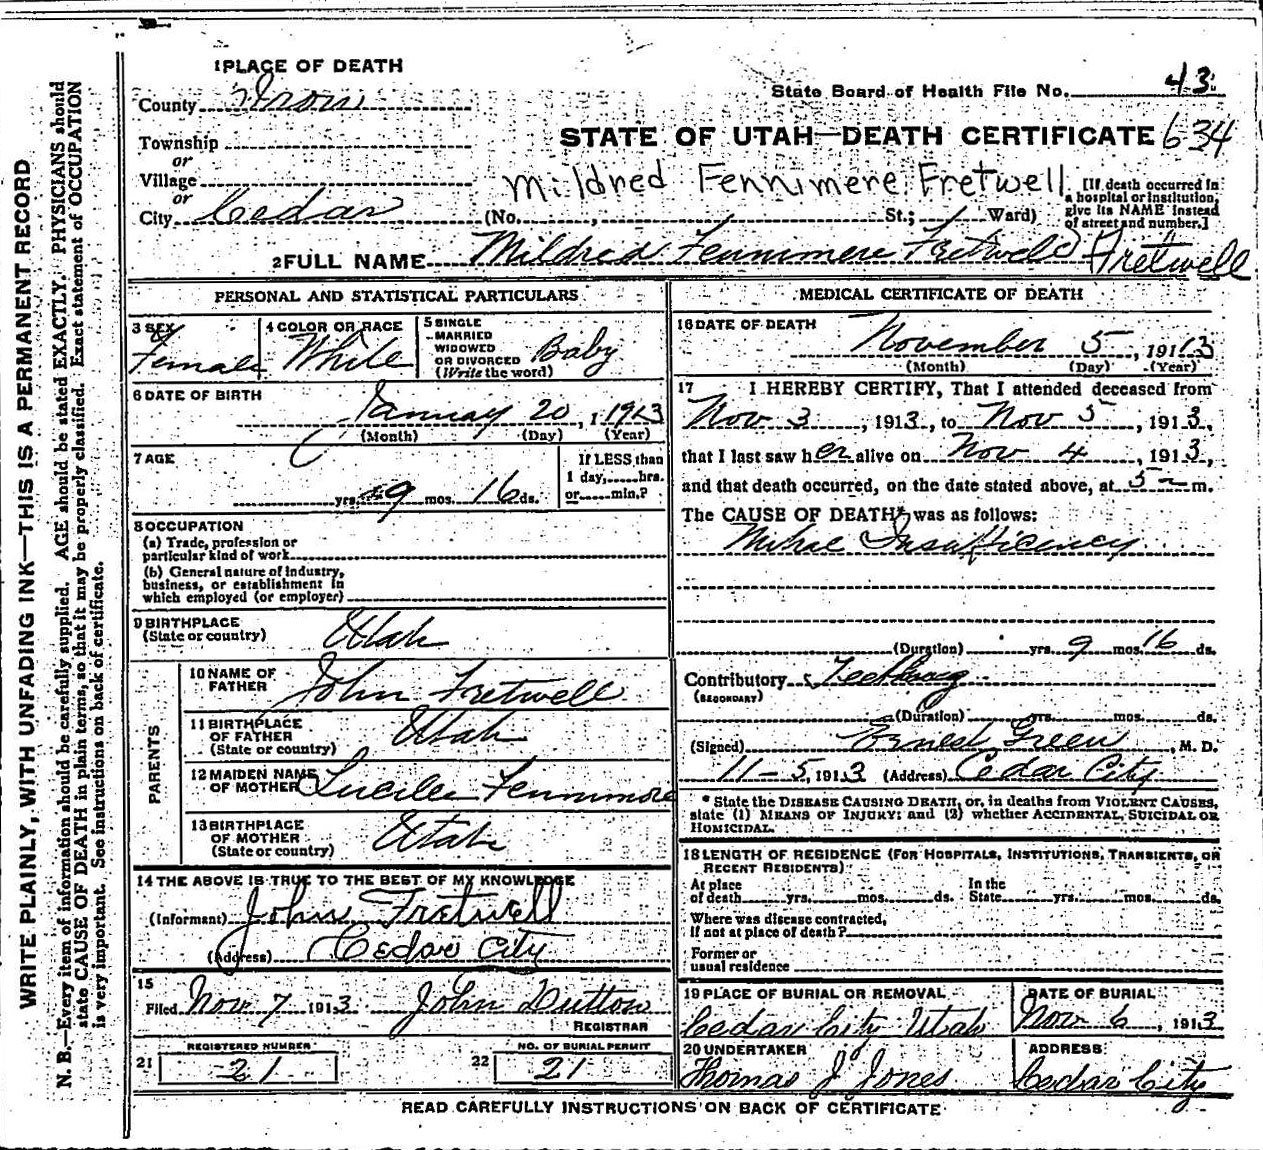 WRITE PLAINLY, WITH UNFADING INK—THIS IS A PERMANENT RECORD
N. B.—Every item of information should be carefully supplied. AGE should be stated EXACTLY. PHYSICIANS should
state CAUSE OF DEATH in plain terms, so that it may be properly classified. Exact statement of OCCUPATION
is very important. See instructions on back of certificate.
1 PLACE OF DEATH
County Iron
Township
or
Village
or
City Cedar
State Board of Health File No. 43
STATE OF UTAH—DEATH CERTIFICATE 634
Mildred Fennimere Fretwell
(No. , St.; 1 Ward)
[If death occurred in
a hospital or institution,
give its NAME instead
of street and number.]
2 FULL NAME Mildred Fennimere Fretwell Fretwell
PERSONAL AND STATISTICAL PARTICULARS
3 SEX
Female
4 COLOR OR RACE
White
5 SINGLE
MARRIED
WIDOWED
OR DIVORCED
(Write the word)
Baby
6 DATE OF BIRTH
January 20, 1 1913
(Month) (Day) (Year)
7 AGE
yrs. 9 mos. 16 ds.
If LESS than
1 day, hrs.
or min.?
8 OCCUPATION
(a) Trade, profession or
particular kind of work
(b) General nature of industry,
business, or establishment in
which employed (or employer)
9 BIRTHPLACE
(State or country) Utah
PARENTS
10 NAME OF
FATHER John Fretwell
11 BIRTHPLACE
OF FATHER
(State or country) Utah
12 MAIDEN NAME
OF MOTHER Lucile Fennimore
13 BIRTHPLACE
OF MOTHER
(State or country) Utah
14 THE ABOVE IS TRUE TO THE BEST OF MY KNOWLEDGE
(Informant) John Fretwell
(Address) Cedar City
15
Filed Nov 7 1913 John Dutton
REGISTRAR
REGISTERED NUMBER
21 21
NO. OF BURIAL PERMIT
22 21
MEDICAL CERTIFICATE OF DEATH
16 DATE OF DEATH
November 5, 1913
(Month) (Day) (Year)
17 I HEREBY CERTIFY, That I attended deceased from
Nov 3, 1913, to Nov 5, 1913,
that I last saw her alive on Nov 4, 1913,
and that death occurred, on the date stated above, at 5 m.
The CAUSE OF DEATH* was as follows:
Mitral Insufficiency
(Duration) yrs. 9 mos. 16 ds.
Contributory Teething
(SECONDARY)
(Duration) yrs. mos. ds.
(Signed) Ernest Green, M. D.
11-5, 1913 (Address) Cedar City
* State the DISEASE CAUSING DEATH, or, in deaths from VIOLENT CAUSES,
state (1) MEANS OF INJURY; and (2) whether ACCIDENTAL, SUICIDAL OR
HOMICIDAL.
18 LENGTH OF RESIDENCE (FOR HOSPITALS, INSTITUTIONS, TRANSIENTS, OR
RECENT RESIDENTS)
At place
of death yrs. mos. ds.
In the
State yrs. mos. ds.
Where was disease contracted,
if not at place of death?
Former or
usual residence
19 PLACE OF BURIAL OR REMOVAL
Cedar City Utah
DATE OF BURIAL
Nov 6, 1913
20 UNDERTAKER
Thomas J Jones
ADDRESS
Cedar City
READ CAREFULLY INSTRUCTIONS ON BACK OF CERTIFICATE